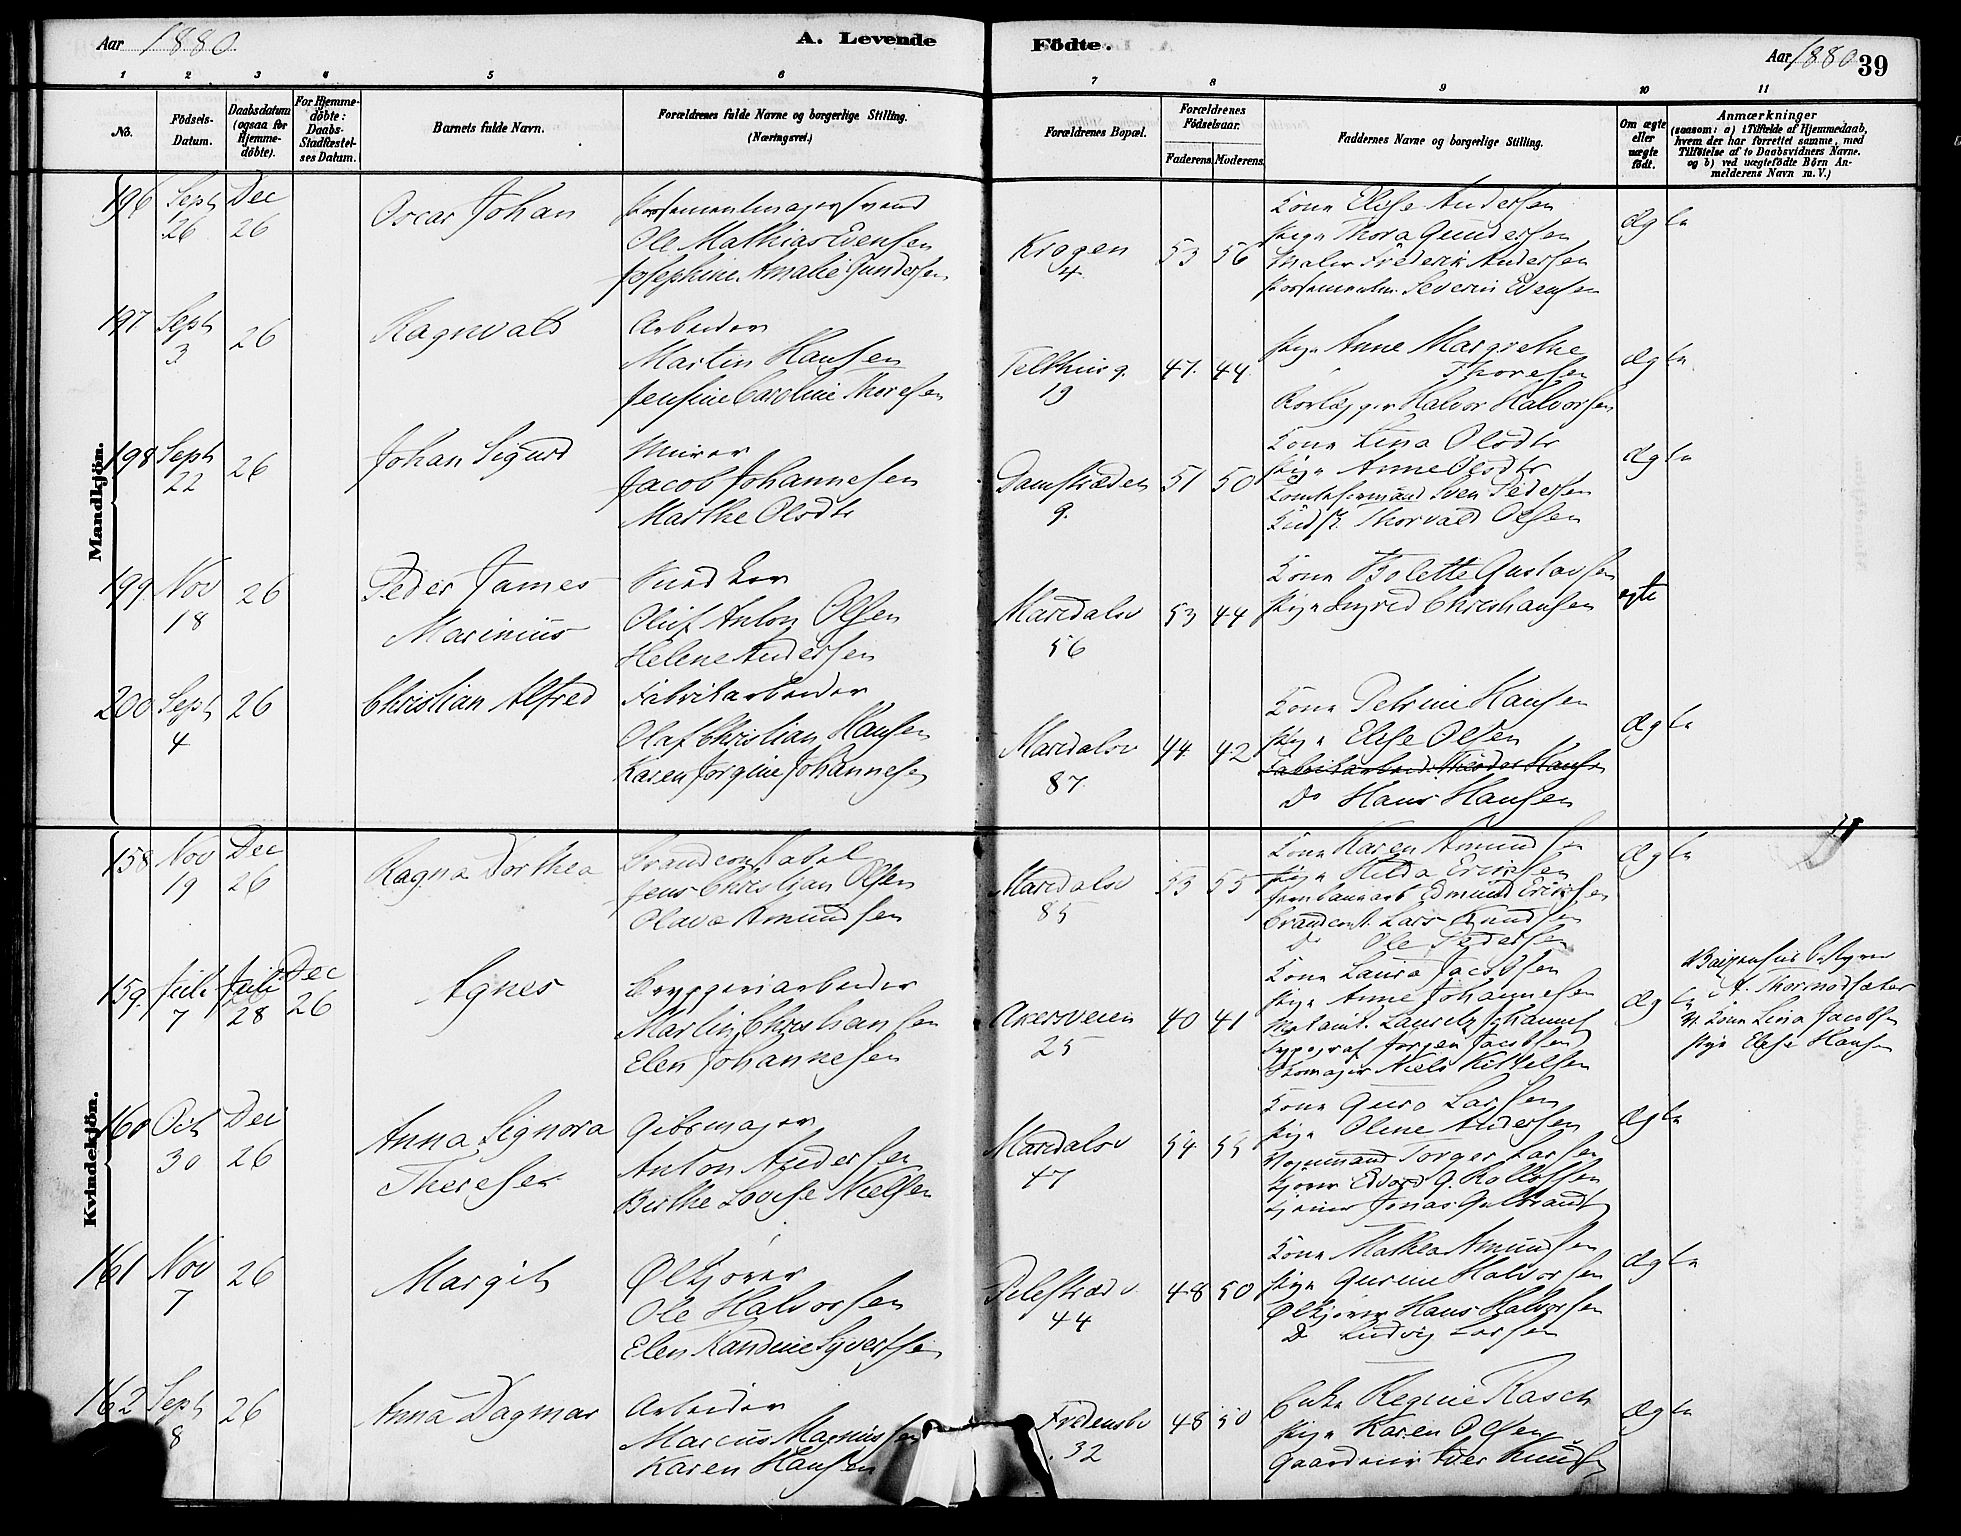 Aar 1880. A. Levende Födte. Aar 1880 39
1 2 3 4 5 6 7 8 9 10 11
No. Födsels-Datum. Daabsdatum (ogsaa for Hjemme-döbte). For Hjemme-döbte: Daabs-Stadfæstel-ses Datum. Barnets fulde Navn. Forældrenes fulde Navne og borgerlige Stilling. (Næringsvei.) Forældrenes Bopæl. Forældrenes Födselsaar. Faderens. Moderens. Faddernes Navne og borgerlige Stilling. Om ægte eller uægte födt. Anmærkninger (saasom: a) i Tilfælde af Hjemmedaab, hvem der har forrettet samme, med Tilföielse af to Daabsvidners Navne, og b) ved uægtefödte Börn An-melderens Navn m. V.)
Mandkjön.
196 Sept 26 Dec 26 Oscar Johan
Ole Mathias Evensen
Josephine Amalie Gundersen
Krogen 4 53 56
Kone Elise Andersen
Pige Thora Gundersen
Maler Frederik Andersen
Severin Evensen
Ægte
197 Sept 3 26 Ragnvald
Arbeider
Martin Hansen
Jensine Caroline Thoresen
Telthusg. 19 47 44
Pige Anne Margrethe
Thoresen
Rorlægger Halvor Halvorsen
Ægte
198 Sept 22 26 Johan Sigurd
Murer
Jacob Johannesen
Marthe Olsdtr
Damstræden 9. 51 50
Kone Lina Olsdtr
Pige Anne Olsdtr
Sven Pedersen
Thorvald Olsen
Ægte
199 Nov 18 26 Peder James
Marinius
Snedker
Oluf Anton Olsen
Helene Andersen
Maridalsv 56 53 44
Kone Bolette Gustavsen
Pige Ingred Christiansen
egte
200 Sept 4 26 Christian Alfred
Fabrikarbeider
Olaf Christian Hansen
Karen Jorgine Johannesen
Maridalsv 87 44 42
Kone Petrine Hansen
Pige Elise Olsen
Fabrikarbeid. Theodor Hansen
Do Hans Hansen
Ægte
Kvindekjön.
158 Nov 19 Dec 26 Ragna Dorthea
Brandconstabel
Jens Christian Olsen
Olava Amundsen
Maridalsv 85 53 55
Kone Karen Amundsen
Pige Hilda Eriksen
Jernbanearb Edmund Eriksen
Brandconst. Lars Knudsen
Do Ole Pedersen
Ægte
159. Juli 7 Juli 28 Dec 26 Agnes
Bryggeriarbeider
Martin Christiansen
Elen Johannesen
Akersveien 25 40 41
Kone Laura Jacobsen
Pige Anne Johannesen
Lauritz Johannes
Typograf Jørgen Jacobsen
Skomager Niels Kittelsen
Ægte
A. Thormodsæter
Kone Lina Jacobsen
Pige Elise Hansen
160 Oct 30 Dec 26 Anna Signora
Therese
Gibsmager
Anton Andersen
Birthe Lovise Nielsen
Maridalsv 47 54 55
Kone Guro Larsen
Pige Oline Andersen
Torger Larsen
Kjører Edvard G. Rollefsen
Kjører Jonas Gulbrandsen
Ægte
161 Nov 7 26 Margit
Ølkjører
Ole Halvorsen
Elen Randine Syversen
Pilestræd 44 48 50
Kone Mathea Amundsen
Pige Gurine Halvorsen
Ølkjører Hans Halvorsen
Do Ludvig Larsen
Ægte
162 Sept 8 26 Anna Dagmar
Arbeider
Marcus Magnussen
Karen Hansen
Fredensbo 32 48 50
Enke Regine Rasch
Pige Karen Olsen
Iver Knudsen
Ægte